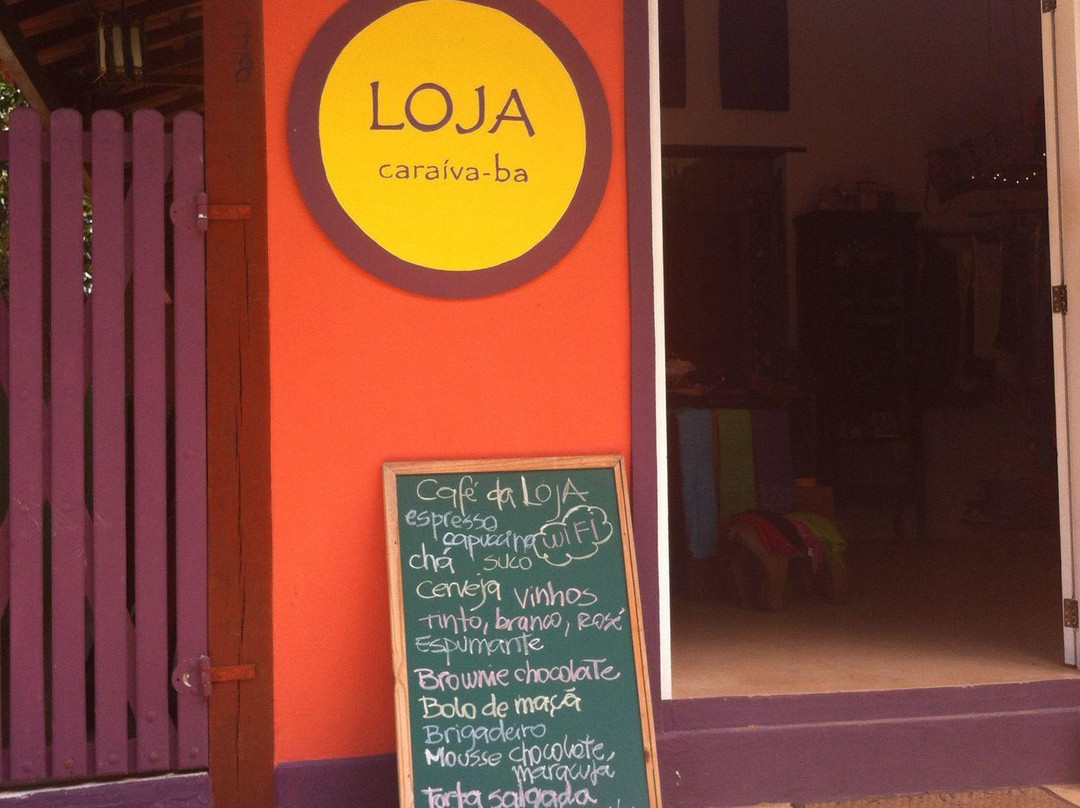 LOJA
caraíva-ba
Café da LOJA
espresso
capuccino
WiFi
chá suco
Cerveja vinhos
Tinto, branco, Rosé
Espumante
Brownie chocolate
Bolo de maçã
Brigadeiro
Mousse chocolate,
maracuja
Torta salgada